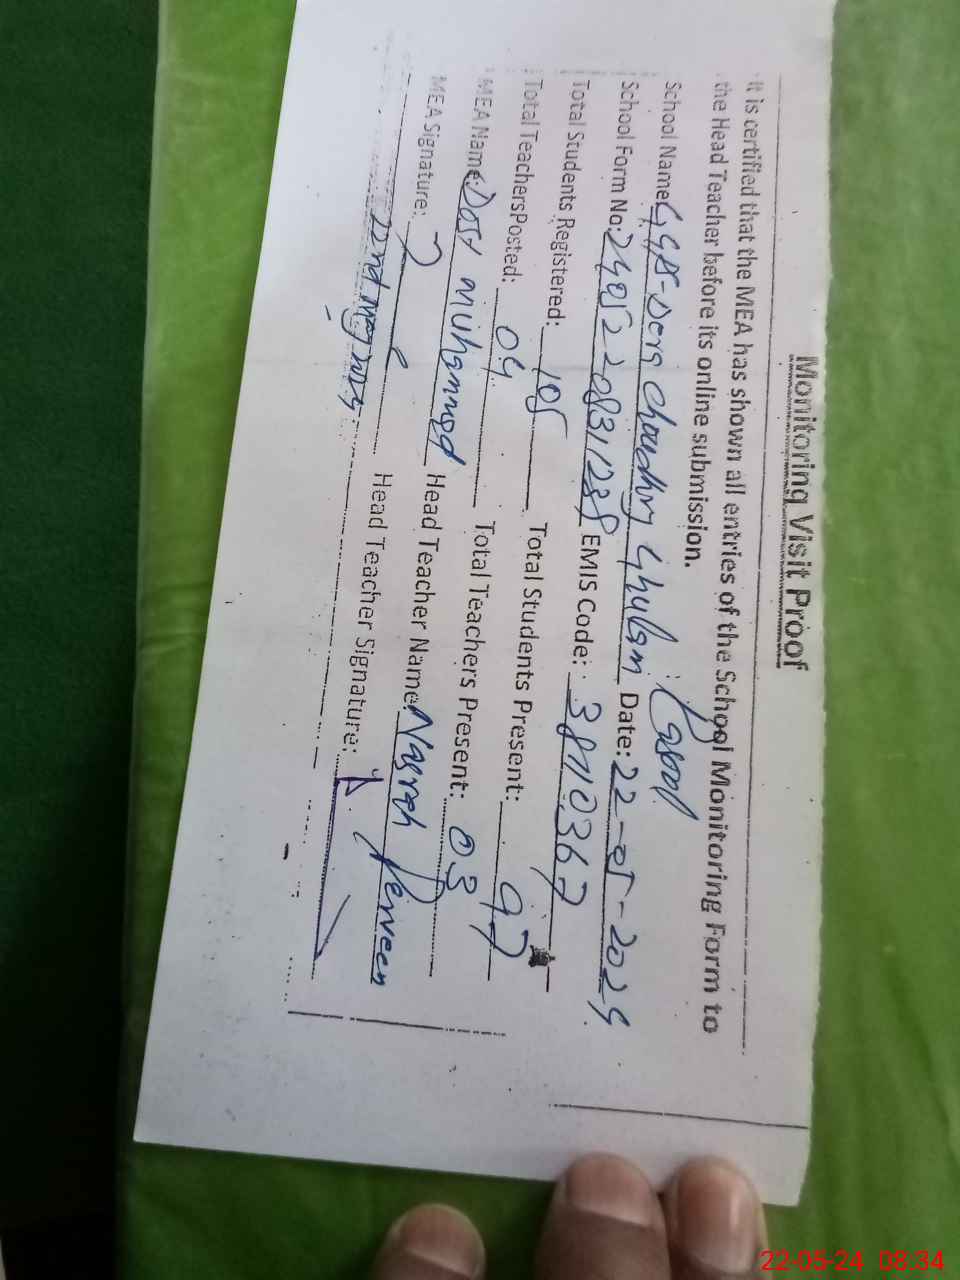 Monitoring Visit Proof
It is certified that the MEA has shown all entries of the School Monitoring Form to
the Head Teacher before its online submission.
School Name: GGPS-Dera Choudhry Ghulam Rasool Date: 22-05-2024
School Form No: EMIS Code: 38110367
Total Students Registered: 105 Total Students Present: 97
Total TeachersPosted: 04 Total Teachers Present: 03
MEA Name: Dost Muhammad Head Teacher Name: Nasrah Perveen
MEA Signature: Head Teacher Signature:
22nd May
22-05-24 08:34